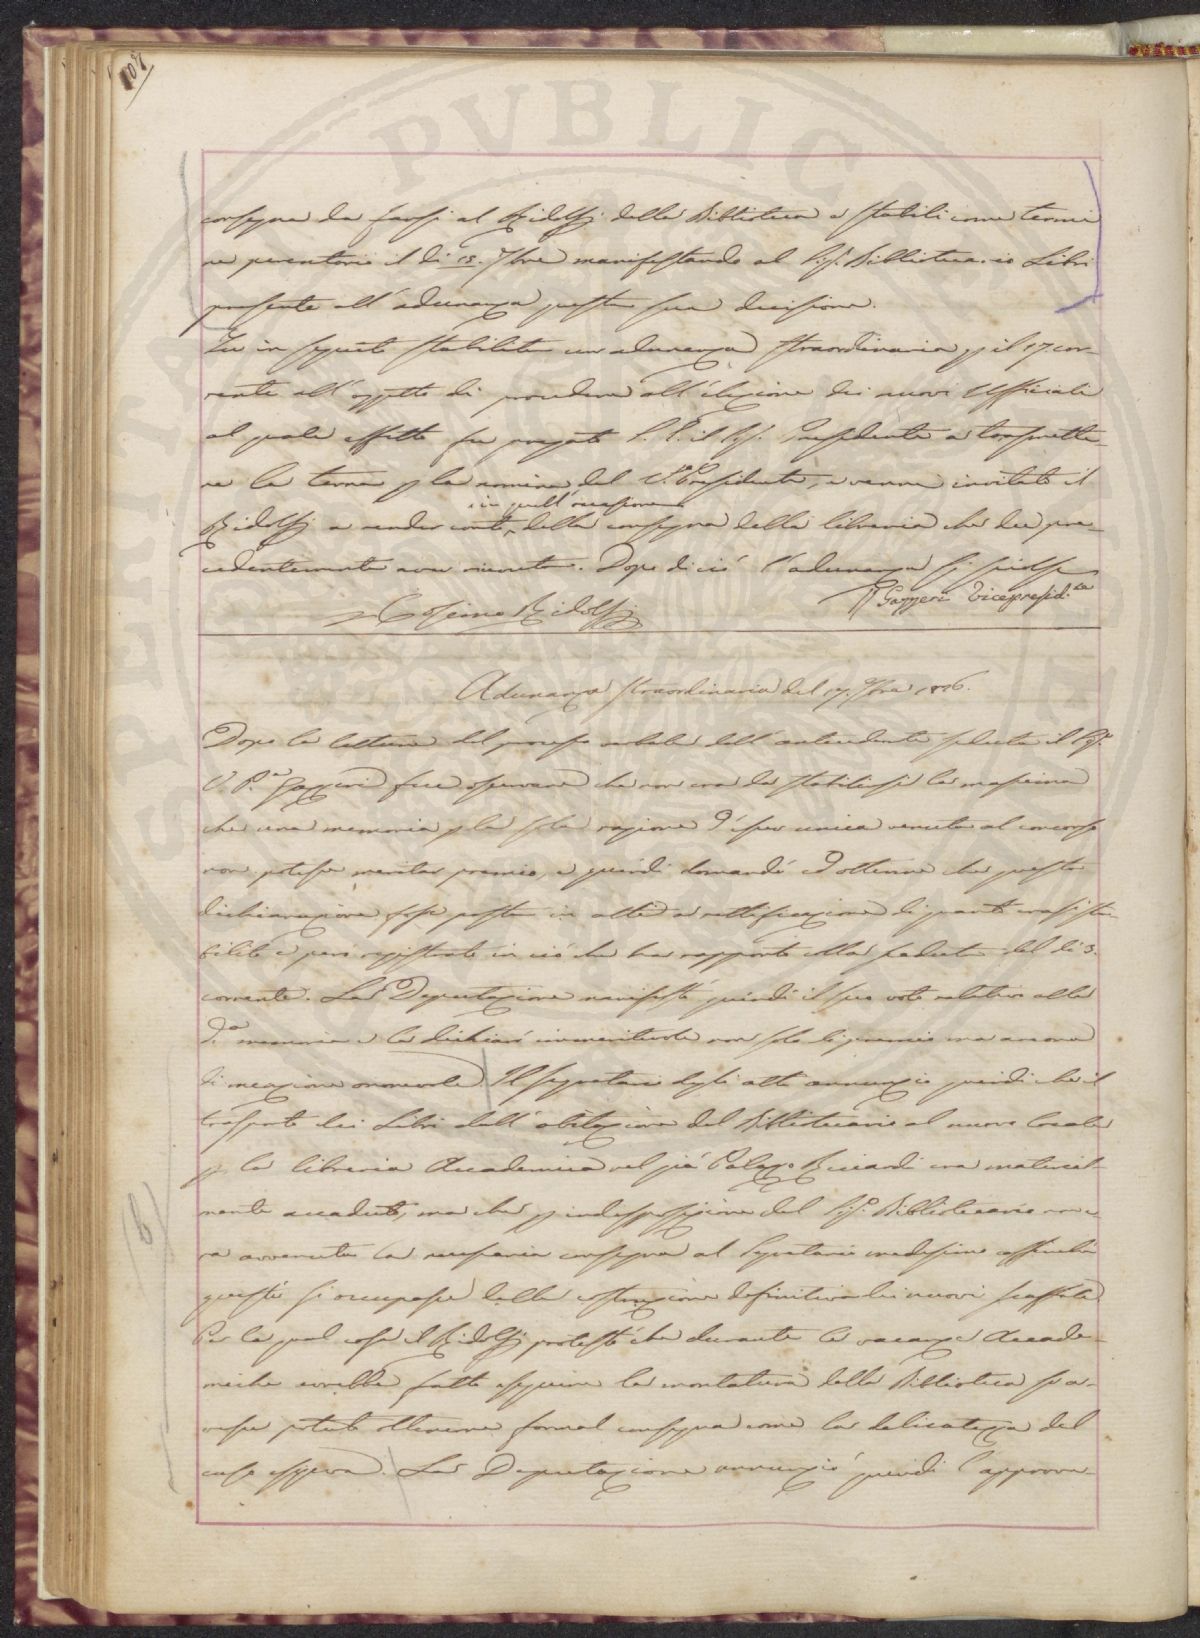 107
consegna da farsi al Ridolfi della Biblioteca e stabilì come termi
ne perentorio il dì 15. 7bre manifestando al Sig. Bibliotecario Libri
presente all'adunanza questa sua decisione.
Fu in seguito stabilita un adunanza straordinaria p il 17 cor-
rente all'oggetto di procedere all'elezione dei nuovi Uffiziali
al quale effetto fu pregato il Sig. Presidente a trasmette-
re la terna p la nomina del V. Presidente, e venne invitato il
in quell'occasione
Ridolfi a render conto della consegna della libreria che dee pre-
cedentemente aver ricevuta. Dopo di ciò l'adunanza si sciolse
Cosimo Ridolfi
Gazzeri Vicepresid.te
Adunanza straordinaria del 17. 7bre 1826.
Dopo la lettura del processo verbale dell'antecedente seduta il Sig.
V. P.e Gazzeri fece osservare che non era da stabilirsi la massima
che una memoria p la sola ragione d'esser unica venuta al concorso
non potesse meritar premio, e quindi domandò ed ottenne che questa
dichiarazione fosse posta in atti a rettificazione di quanto erasi sta-
bilito e però registrato in ciò che ha rapporto alla seduta del dì 3.
corrente. La Deputazione manifestò quindi il suo voto relativo alla
d.a memoria e la dichiarò immeritevole non solo di premio ma ancora
di menzione onorevole. Il segretario degli atti annunziò quindi che il
trasporto dei Libri dall'abitazione del Bibliotecario al nuovo locale
p la libreria Accademica nel già Palazzo Riccardi era material-
mente accaduto, ma che p indisposizione del Sig. Bibliotecario non e-
ra avvenuta la necessaria consegna al Segretario medesimo affinchè
questi si occupasse della costruzione definitiva dei nuovi scaffali
Per la qual cosa il Ridolfi protestò che durante le vacanze Accade-
miche avrebbe fatto eseguire la montatura della Biblioteca se a-
vesse potuto ottenerne formal consegna come la delicatezza del
caso esigeva. La Deputazione annunziò quindi l'approva-